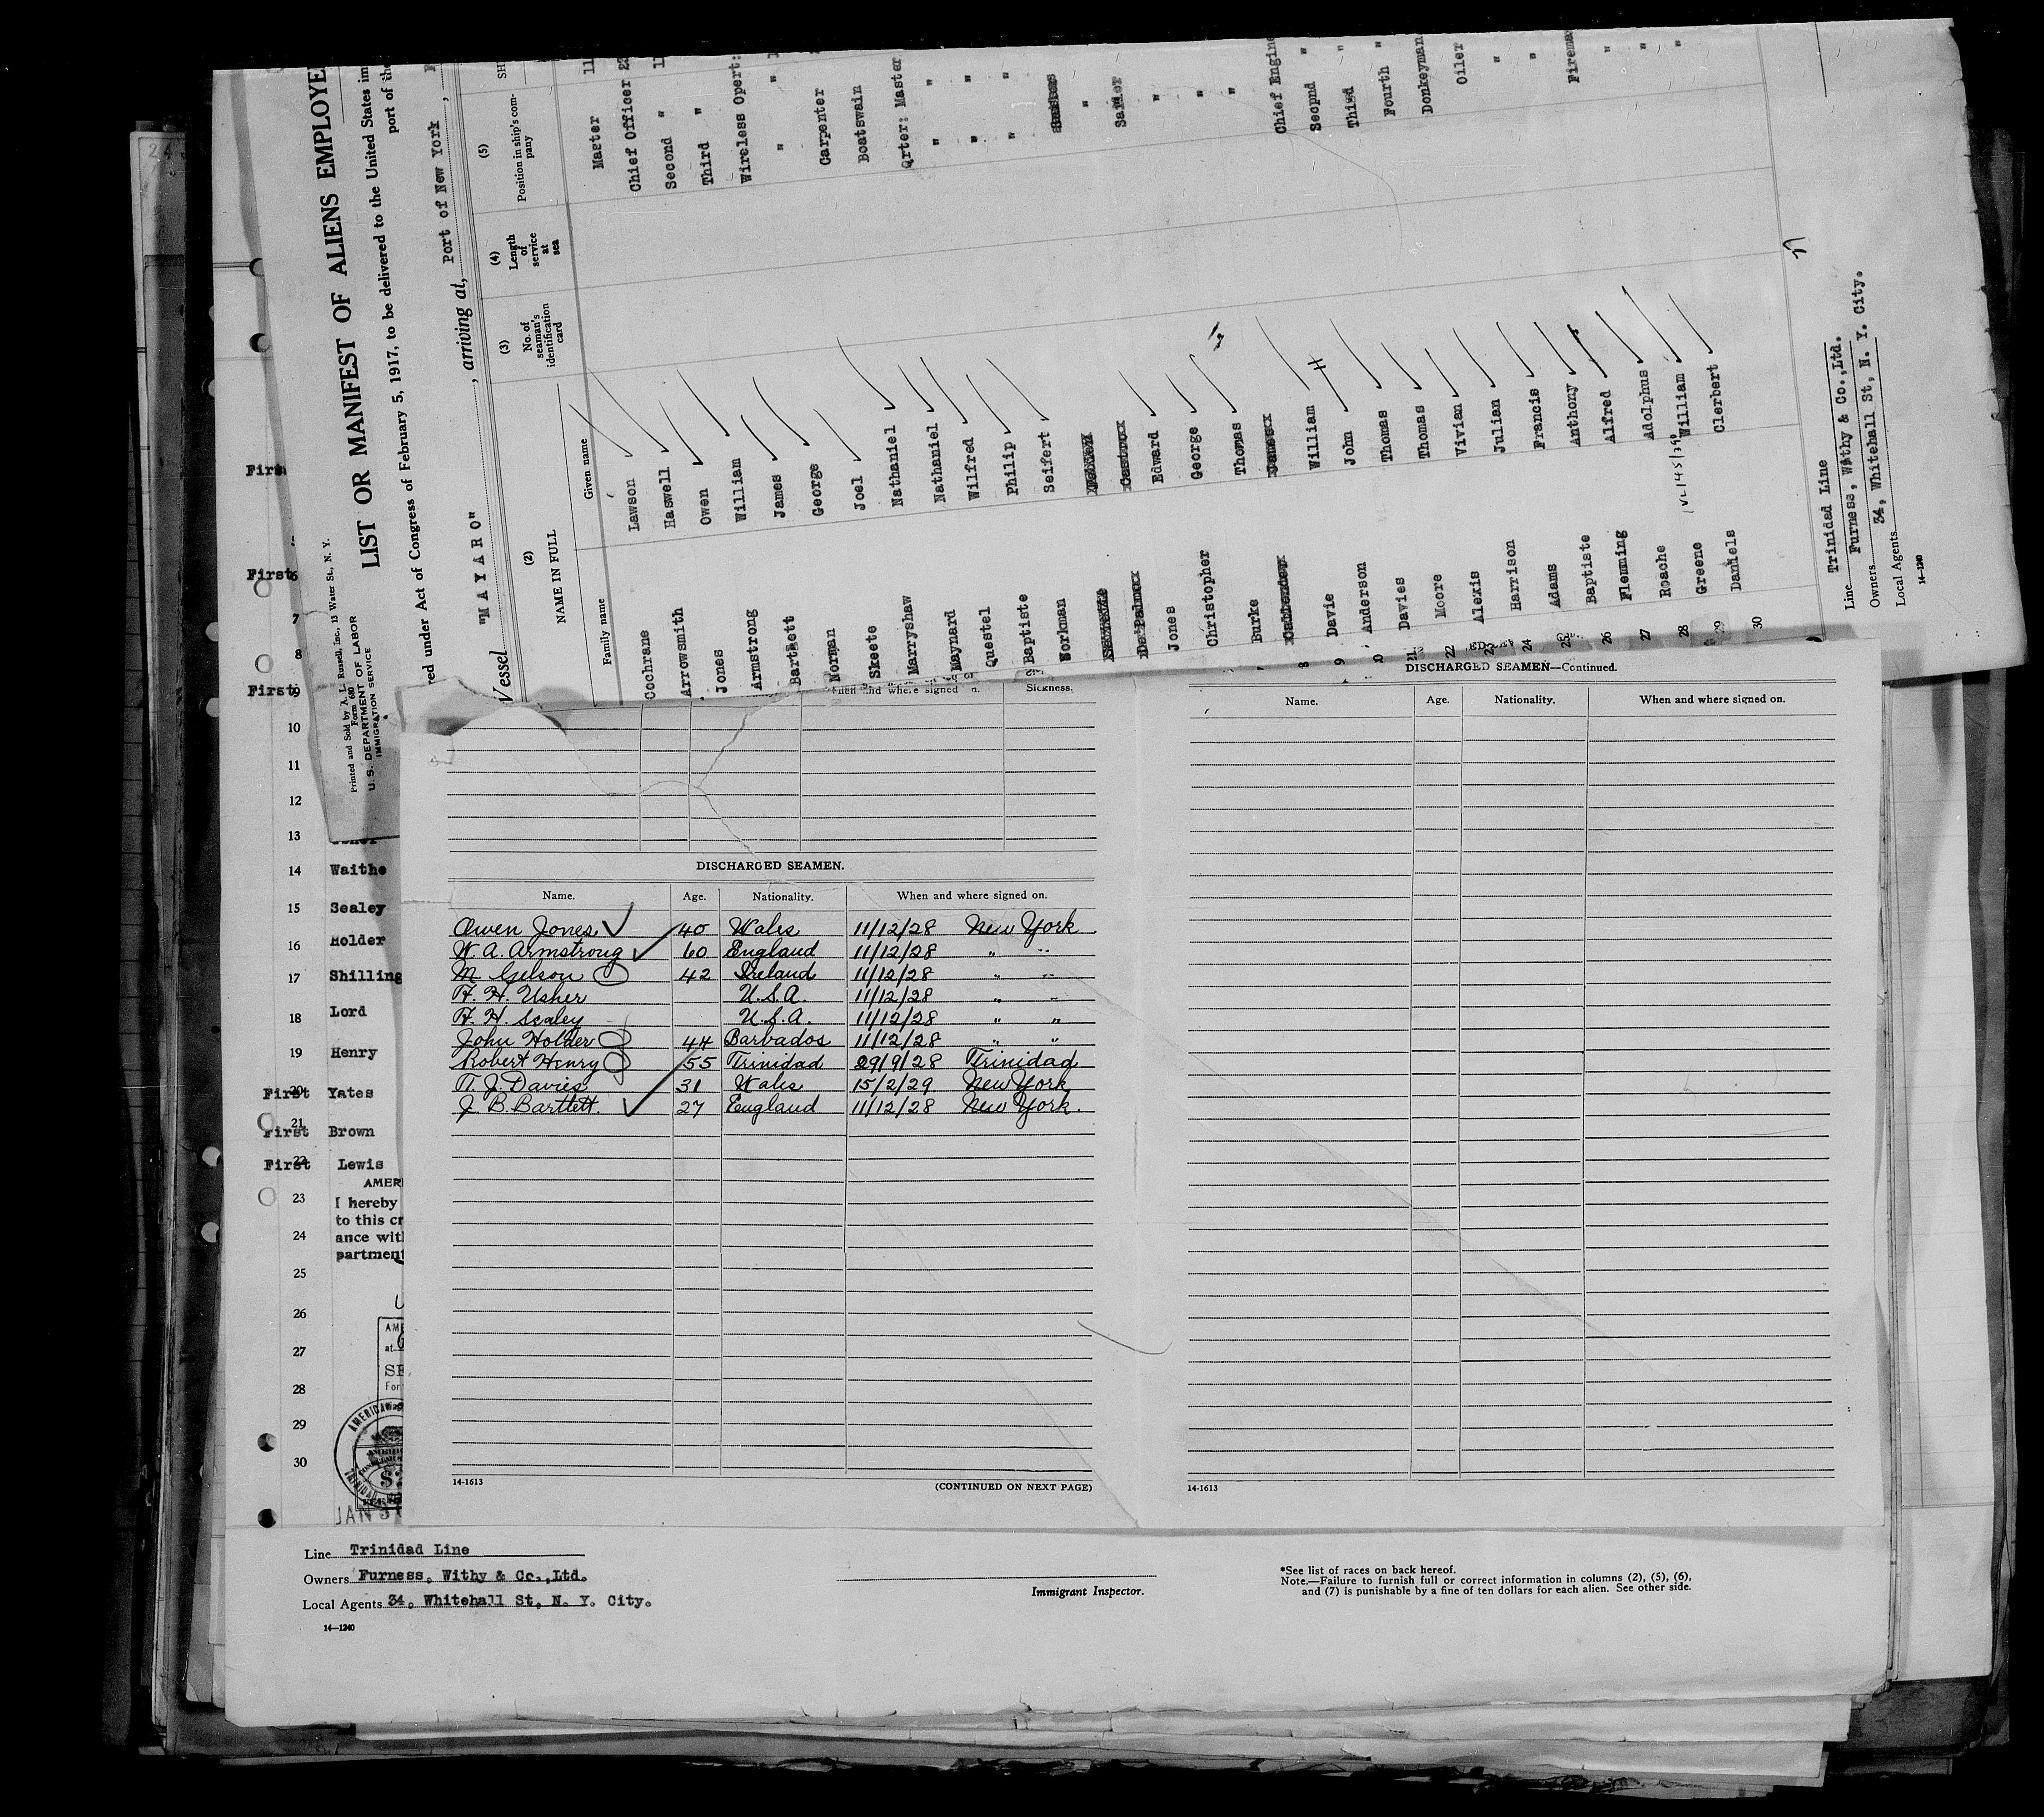 LIST OR MANIFEST OF ALIENS EMPLOYE
red under Act of Congress of February 5, 1917, to be delivered to the United States im
port of the
Printed and Sold by A. L. Russell, Inc., 13 Water St., N. Y.
Form 680
U. S. DEPARTMENT OF LABOR
IMMIGRATION SERVICE
Vessel "MAYARO", arriving at, Port of New York,
(2) (3) (4) (5)
NAME IN FULL No. of seaman's identification card Length of service at sea Position in ship's company
Family name Given name
Cochrane Lawson Master
Arrowsmith Haswell Chief Officer
Jones Owen Second "
Armstrong William Third "
Bartlett James Wireless Opert:
Norman George "
Skeete Joel Carpenter
Marryshaw Nathaniel Boatswain
Maynard Nathaniel Qrter: Master
Questel Wilfred " "
Baptiste Philip " "
Workman Seifert " "
Jones Edward Sailor
Christopher George "
Burke Thomas "
8 Davie William Chief Engine
9 Anderson John Secpnd "
Davies Thomas Third "
21 Moore Thomas Fourth "
22 Alexis Vivian Donkeyman
23 Harrison Julian Oiler
24 Adams Francis "
25 Baptiste Anthony "
26 Flemming Alfred Firema
27 Roache Adolphus "
28 Greene William "
29 Daniels Clerbert "
30
Line Trinidad Line
Owners Furness, Withy & Co.,Ltd.
Local Agents 34, Whitehall St, N. Y. City.
14—1240
First
First 6
7
8
First 9
10
11
12
13
14 Waithe
15 Sealey
16 Holder
17 Shilling
18 Lord
19 Henry
First 20 Yates
First 21 Brown
First 22 Lewis
AMERI
23 I hereby
to this cr
24 ance with
partment
25
26
27
28
29
30
when and where signed on. Sickness.
DISCHARGED SEAMEN.
Name. Age. Nationality. When and where signed on.
Owen Jones 40 Wales 11/12/28 New York
W. A. Armstrong 60 England 11/12/28 " "
M. Gelson 42 Ireland 11/12/28 " "
H. H. Usher U.S.A. 11/12/28 " "
H. H. Sealey U.S.A. 11/12/28 " "
John Holder 44 Barbados 11/12/28 " "
Robert Henry 55 Trinidad 29/9/28 Trinidad
T. J. Davies 31 Wales 15/2/29 New York
J. B. Bartlett. 27 England 11/12/28 New York.
14-1613 (CONTINUED ON NEXT PAGE)
DISCHARGED SEAMEN—Continued.
Name. Age. Nationality. When and where signed on.
14-1613
Line Trinidad Line
Owners Furness, Withy & Co.,Ltd.
Local Agents 34, Whitehall St, N. Y. City.
14—1240
Immigrant Inspector.
*See list of races on back hereof.
Note.—Failure to furnish full or correct information in columns (2), (5), (6),
and (7) is punishable by a fine of ten dollars for each alien. See other side.